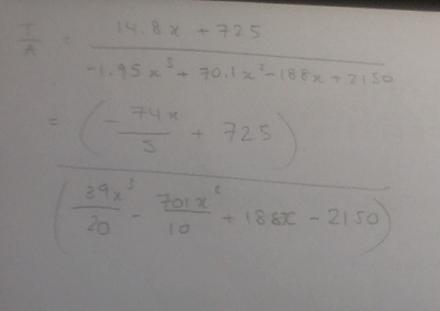 T/A = (14.8x + 725) / (-1.95x³ + 70.1x² - 188x + 2150)
= (-74x/5 + 725) / (39x³/20 - 701x²/10 + 188x - 2150)